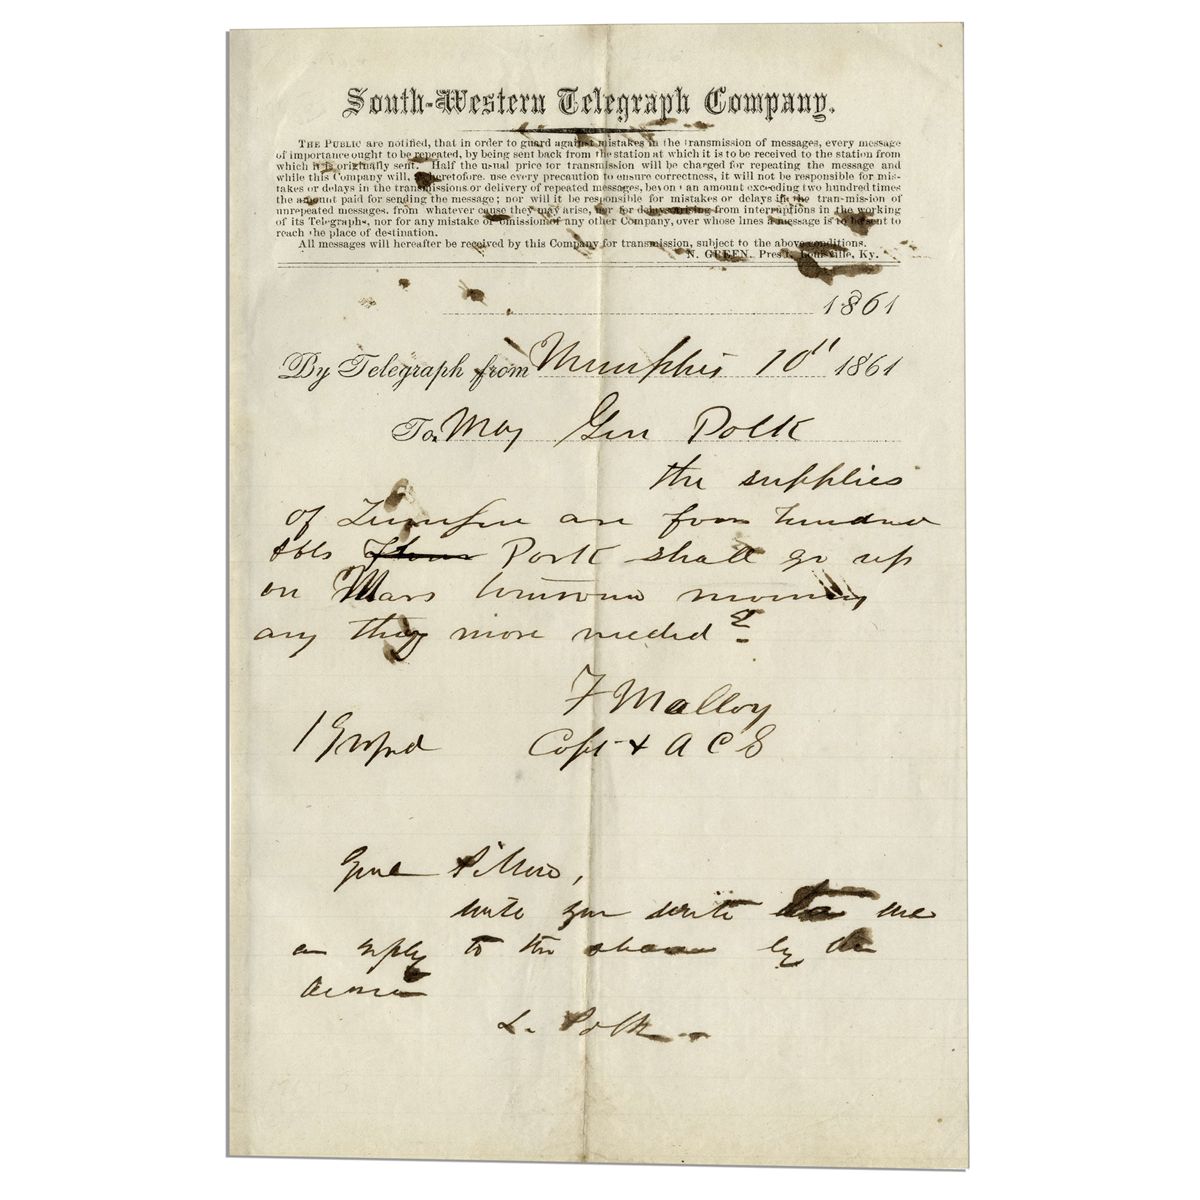 South-Western Telegraph Company.
THE PUBLIC are notified, that in order to guard against mistakes in the transmission of messages, every message
of importance ought to be repeated, by being sent back from the station at which it is to be received to the station from
which it is originally sent. Half the usual price for transmission will be charged for repeating the message and
while this Company will, heretofore. use every precaution to ensure correctness, it will not be responsible for mis-
takes or delays in the transmissions or delivery of repeated messages, beyond an amount exceeding two hundred times
the amount paid for sending the message; nor will it be responsible for mistakes or delays in the transmission of
unrepeated messages, from whatever cause they may arise, nor for delays arising from interruptions in the working
of its Telegraphs, nor for any mistake or omission of any other Company, over whose lines a message is to be sent to
reach the place of destination.
All messages will hereafter be received by this Company for transmission, subject to the above conditions.
N. GREEN. Pres't. Louisville, Ky.
1861
By Telegraph from Memphis 10" 1861
To Maj Gen Polk
the supplies
of are four hundred
bbls Flour Pork shall go up
on Mars morning
any thing more needed?
F Mallory
Capt & A C S
Genl Pillow,
you write me
a reply to the above by the
L. Polk